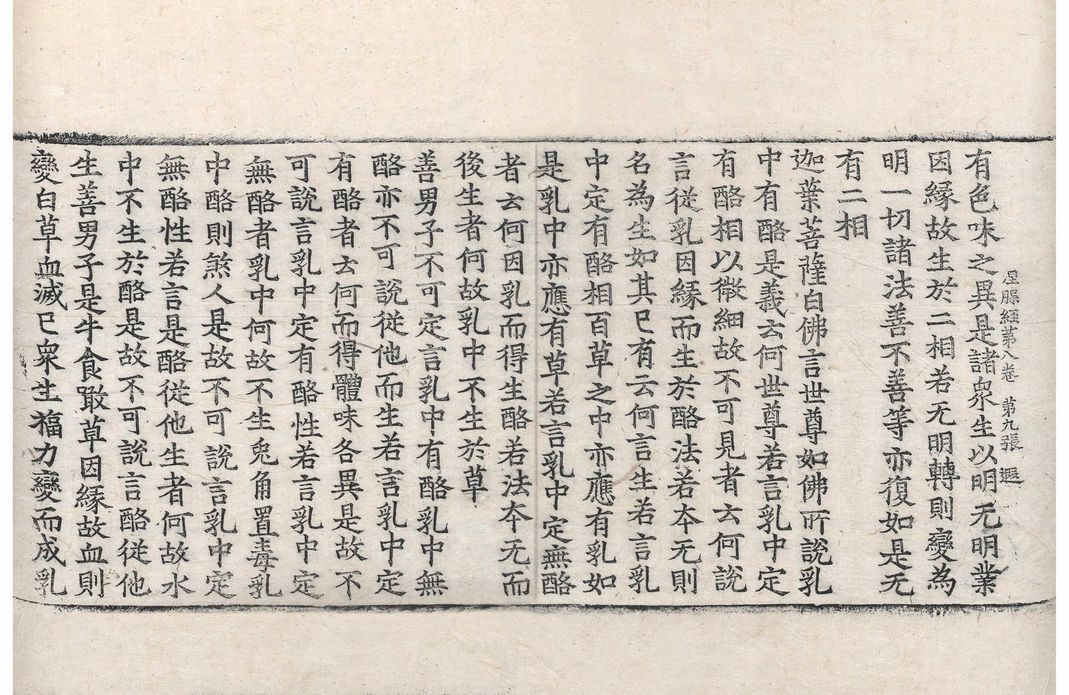 涅槃經第八卷 第九張 遐
有色味之異是諸衆生以明无明業
因緣故生於二相若无明轉則變為
明一切諸法善不善等亦復如是无
有二相
迦葉菩薩白佛言世尊如佛所說乳
中有酪是義云何世尊若言乳中定
有酪相以微細故不可見者云何說
言從乳因緣而生於酪法若夲无則
名為生如其已有云何言生若言乳
中定有酪相百草之中亦應有乳如
是乳中亦應有草若言乳中定無酪
者云何因乳而得生酪若法夲无而
後生者何故乳中不生於草
善男子不可定言乳中有酪乳中無
酪亦不可說從他而生若言乳中定
有酪者云何而得體味各異是故不
可說言乳中定有酪性若言乳中定
無酪者乳中何故不生兎角置毒乳
中酪則煞人是故不可說言乳中定
無酪性若言是酪從他生者何故水
中不生於酪是故不可說言酪從他
生善男子是牛食噉草因緣故血則
變白草血滅已衆生福力變而成乳